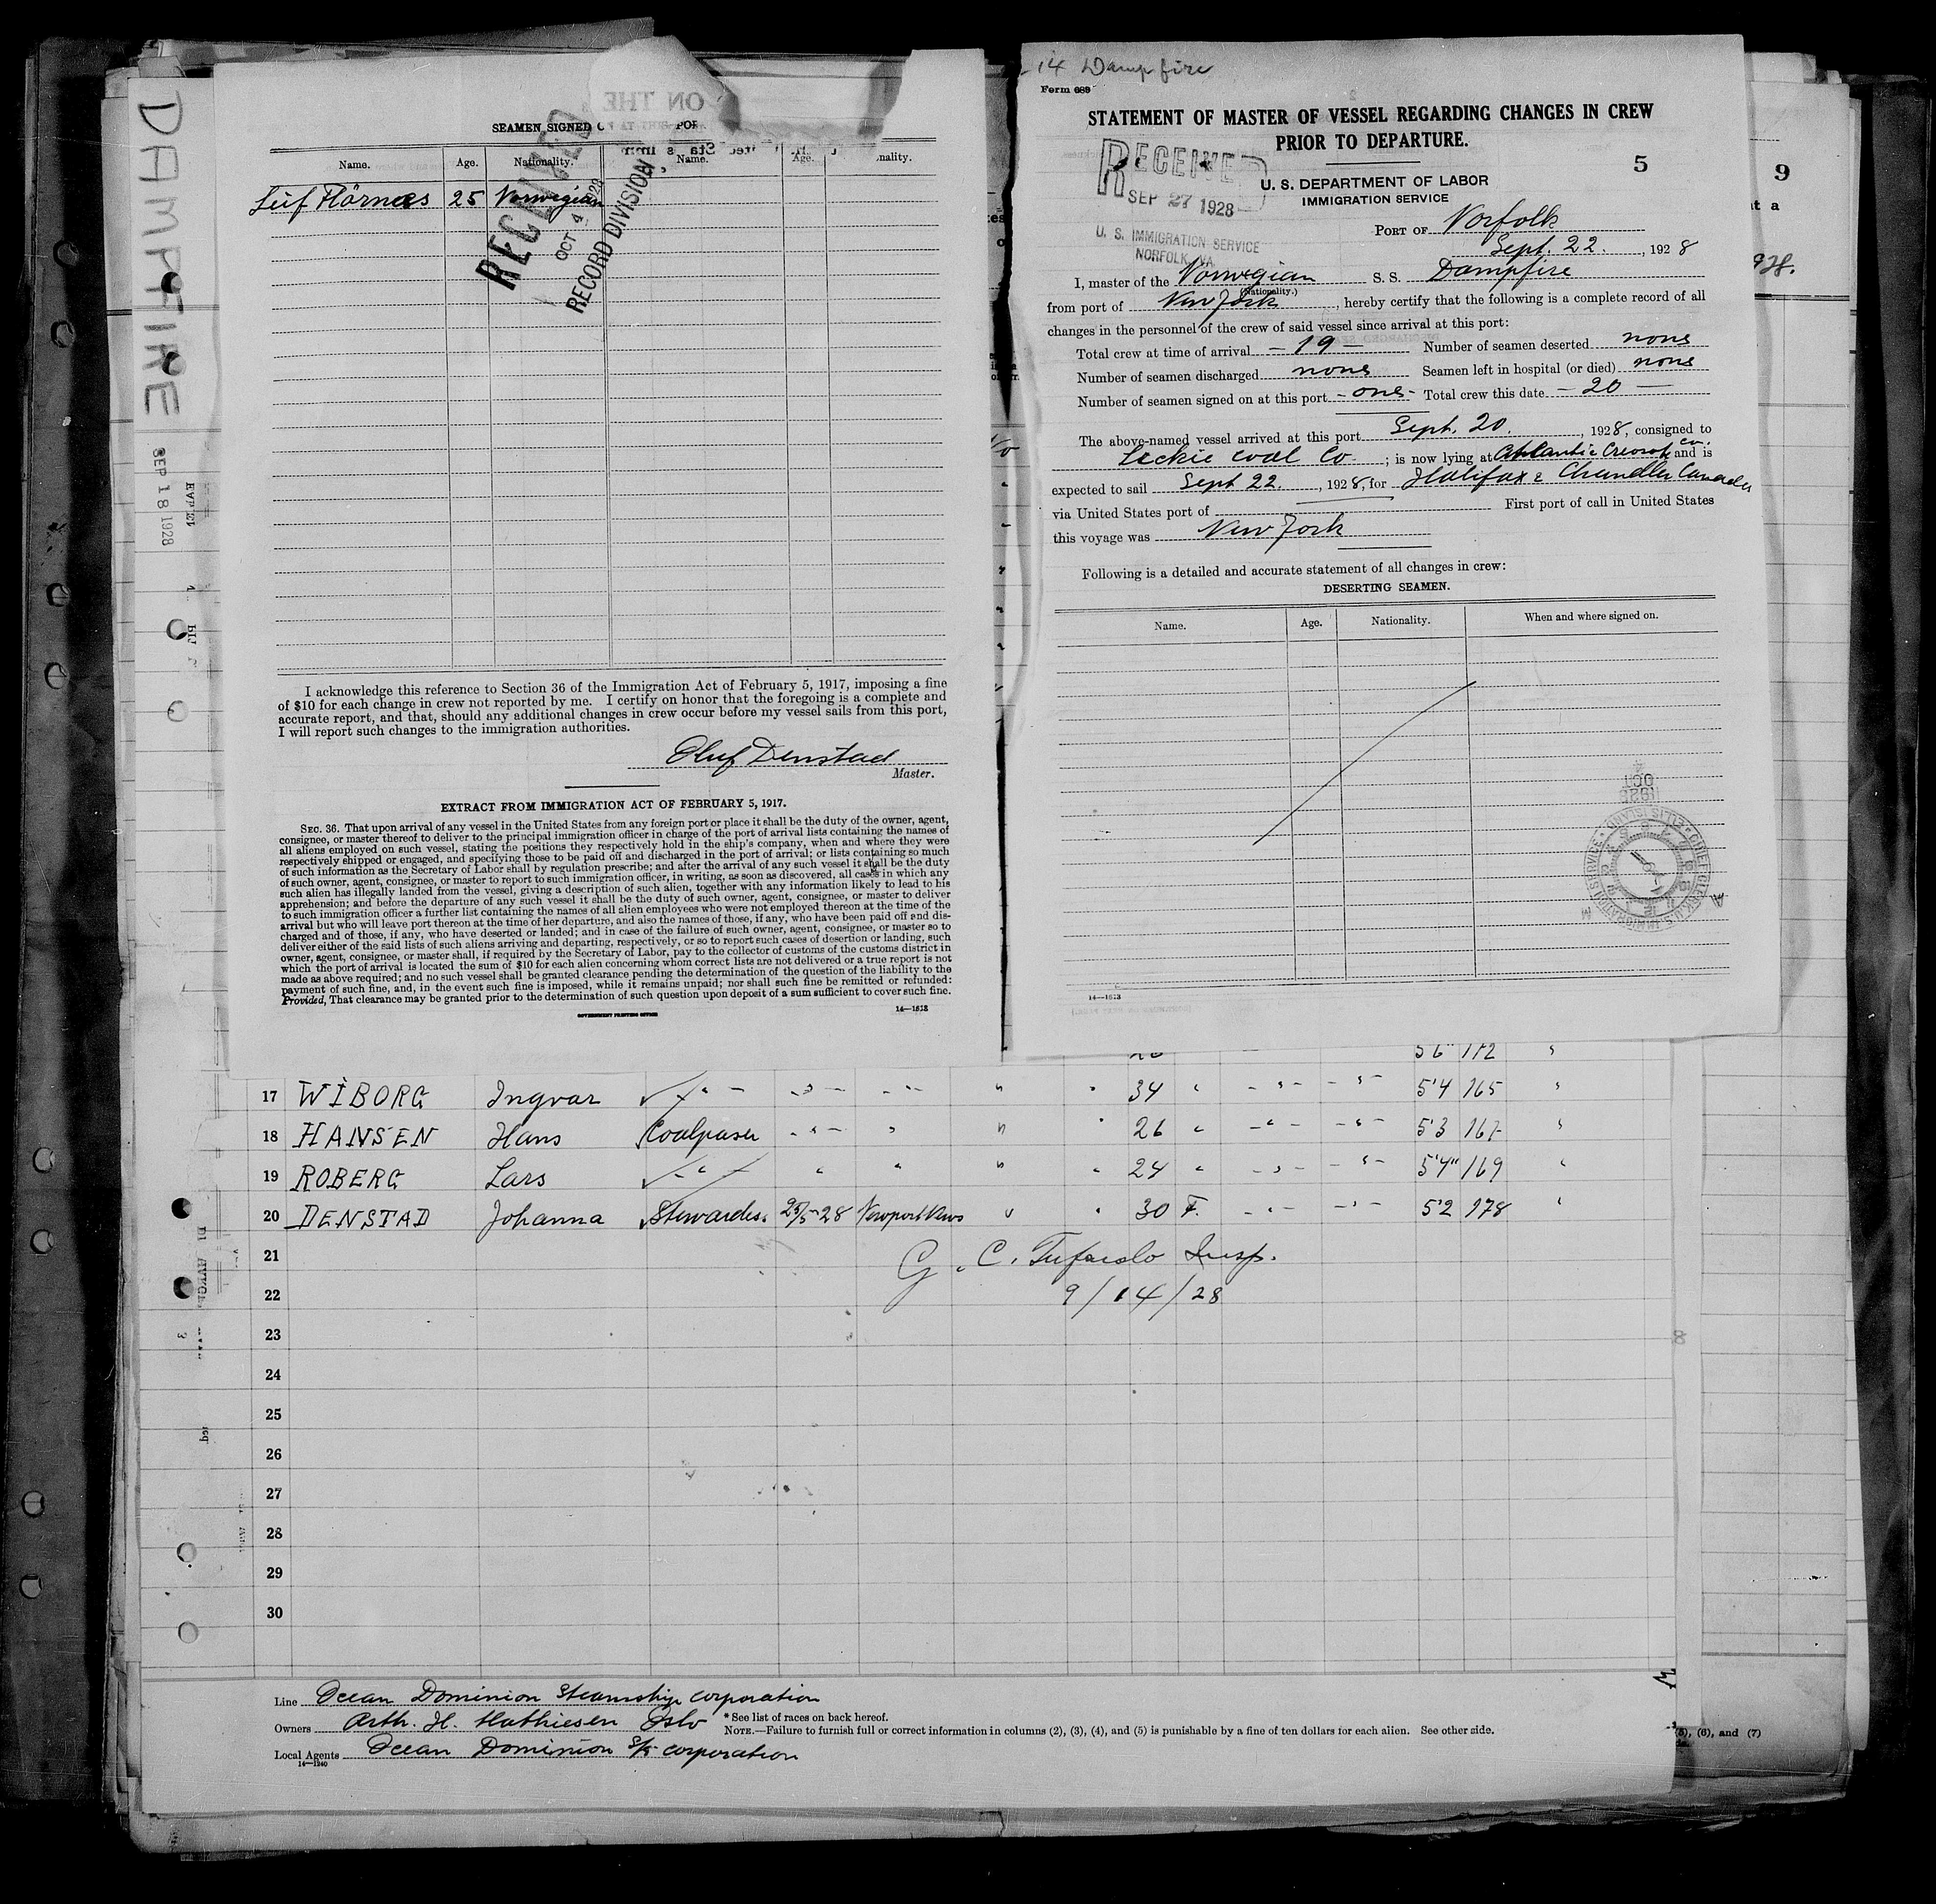 DAMPFIRE
SEP 18 1928
ON THE
SEAMEN SIGNED
Name. Age. Nationality. Name. Age. nality.
Leif Flörnæs 25 Norwegian
RECEIVED
OCT 4 1928
RECORD DIVISION
I acknowledge this reference to Section 36 of the Immigration Act of February 5, 1917, imposing a fine
of $10 for each change in crew not reported by me. I certify on honor that the foregoing is a complete and
accurate report, and that, should any additional changes in crew occur before my vessel sails from this port,
I will report such changes to the immigration authorities.
Oluf Denstad
Master.
EXTRACT FROM IMMIGRATION ACT OF FEBRUARY 5, 1917.
SEC. 36. That upon arrival of any vessel in the United States from any foreign port or place it shall be the duty of the owner, agent,
consignee, or master thereof to deliver to the principal immigration officer in charge of the port of arrival lists containing the names of
all aliens employed on such vessel, stating the positions they respectively hold in the ship's company, when and where they were
respectively shipped or engaged, and specifying those to be paid off and discharged in the port of arrival; or lists containing so much
of such information as the Secretary of Labor shall by regulation prescribe; and after the arrival of any such vessel it shall be the duty
of such owner, agent, consignee, or master to report to such immigration officer, in writing, as soon as discovered, all cases in which any
such alien has illegally landed from the vessel, giving a description of such alien, together with any information likely to lead to his
apprehension; and before the departure of any such vessel it shall be the duty of such owner, agent, consignee, or master to deliver
to such immigration officer a further list containing the names of all alien employees who were not employed thereon at the time of the
arrival but who will leave port thereon at the time of her departure, and also the names of those, if any, who have been paid off and dis-
charged and of those, if any, who have deserted or landed; and in case of the failure of such owner, agent, consignee, or master so to
deliver either of the said lists of such aliens arriving and departing, respectively, or so to report such cases of desertion or landing, such
owner, agent, consignee, or master shall, if required by the Secretary of Labor, pay to the collector of customs of the customs district in
which the port of arrival is located the sum of $10 for each alien concerning whom correct lists are not delivered or a true report is not
made as above required; and no such vessel shall be granted clearance pending the determination of the question of the liability to the
payment of such fine, and, in the event such fine is imposed, while it remains unpaid; nor shall such fine be remitted or refunded:
Provided, That clearance may be granted prior to the determination of such question upon deposit of a sum sufficient to cover such fine.
GOVERNMENT PRINTING OFFICE 14—1523
14 Dampfire
Form 689
STATEMENT OF MASTER OF VESSEL REGARDING CHANGES IN CREW
PRIOR TO DEPARTURE.
5
RECEIVED
SEP 27 1928
U. S. IMMIGRATION SERVICE
NORFOLK, VA.
U. S. DEPARTMENT OF LABOR
IMMIGRATION SERVICE
PORT OF Norfolk
Sept. 22. , 1928
I, master of the Norwegian S. S. Dampfire
(Nationality.)
from port of New York , hereby certify that the following is a complete record of all
changes in the personnel of the crew of said vessel since arrival at this port:
Total crew at time of arrival — 19 — Number of seamen deserted none
Number of seamen discharged none Seamen left in hospital (or died) none
Number of seamen signed on at this port - one - Total crew this date — 20 —
The above-named vessel arrived at this port Sept. 20. , 1928, consigned to
Leckie Coal Co. ; is now lying at Atlantic Creosot co. and is
expected to sail Sept 22. , 1928, for Halifax & Chandler Canada
via United States port of First port of call in United States
this voyage was New York
Following is a detailed and accurate statement of all changes in crew:
DESERTING SEAMEN.
Name. Age. Nationality. When and where signed on.
14—1523
9
t a
928.
5'6" 172 "
17 WIBORG Ingvar " " " " " 34 " " " 5'4 165 "
18 HANSEN Hans Coalpaser " " " " 26 " " " 5'3 167 "
19 ROBERG Lars " " " " " 24 " " " 5'4" 169 "
20 DENSTAD Johanna Stewardes. 25/5-28 Newport News " " 30 F. " " 5'2 178 "
21
G. C. Tufarolo Insp.
22
9/14/28
23
24
25
26
27
28
29
30
Line Ocean Dominion Steamship corporation
Owners Arth. H. Mathiesen Oslo
* See list of races on back hereof.
NOTE.—Failure to furnish full or correct information in columns (2), (3), (4), and (5) is punishable by a fine of ten dollars for each alien. See other side.
Local Agents Ocean Dominion S/S corporation
14—1240
(5), (6), and (7)